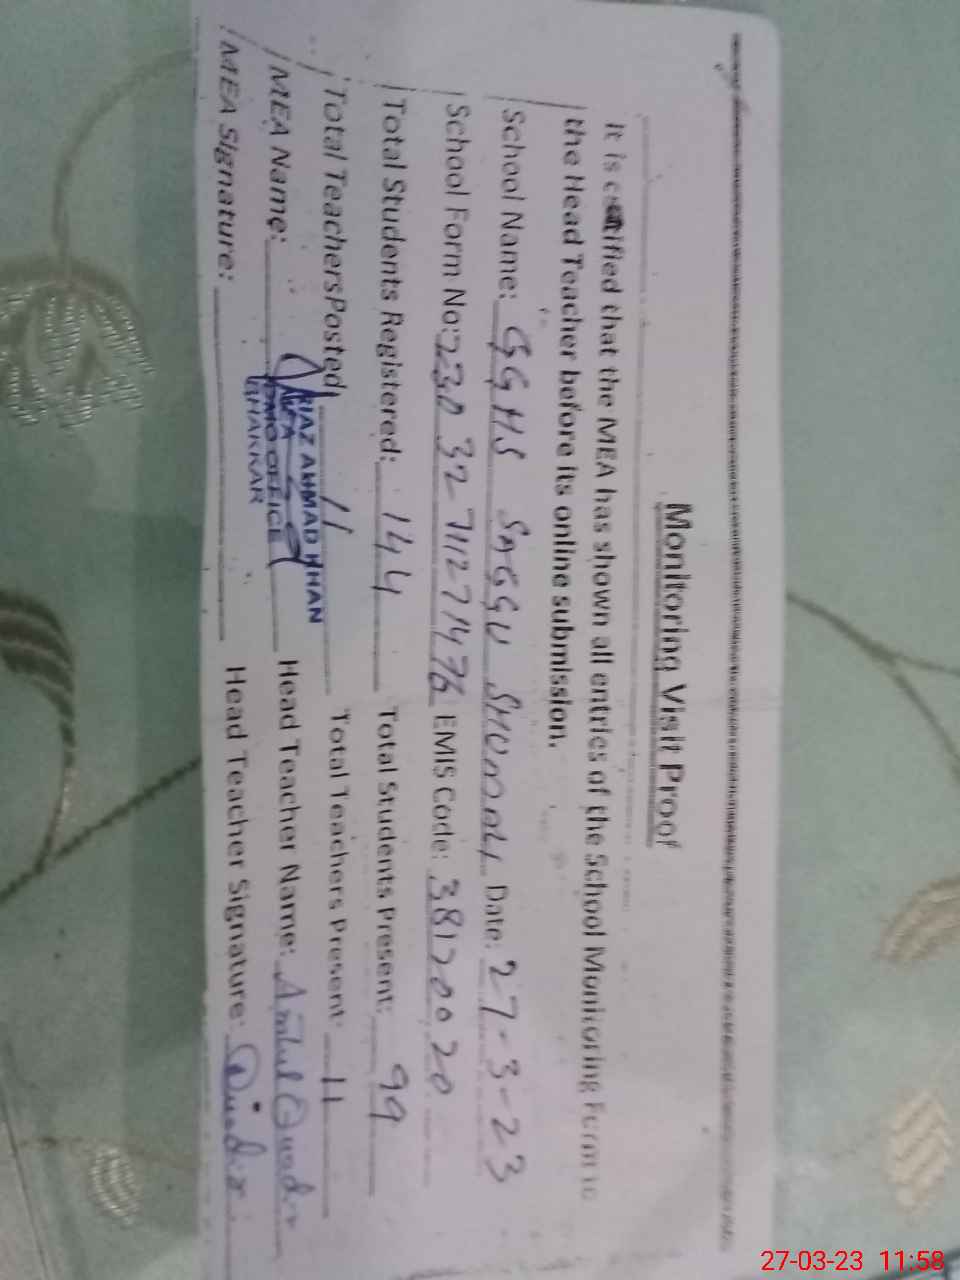 Monitoring Visit Proof
It is certified that the MEA has shown all entries of the School Monitoring Form to
the Head Teacher before its online submission.
School Name: GGHS SAGGU SHUMALI Date: 27-3-23
School Form No: 230 32 71127 1476 EMIS Code: 38120020
Total Students Registered: 144 Total Students Present: 99
Total Teachers Posted 11 Total Teachers Present: 11
RIAZ AHMAD KHAN
MEA
DMO OFFICE
BHAKKAR
MEA Name: Head Teacher Name: Amtul
MEA Signature: Head Teacher Signature:
27-03-23 11:58